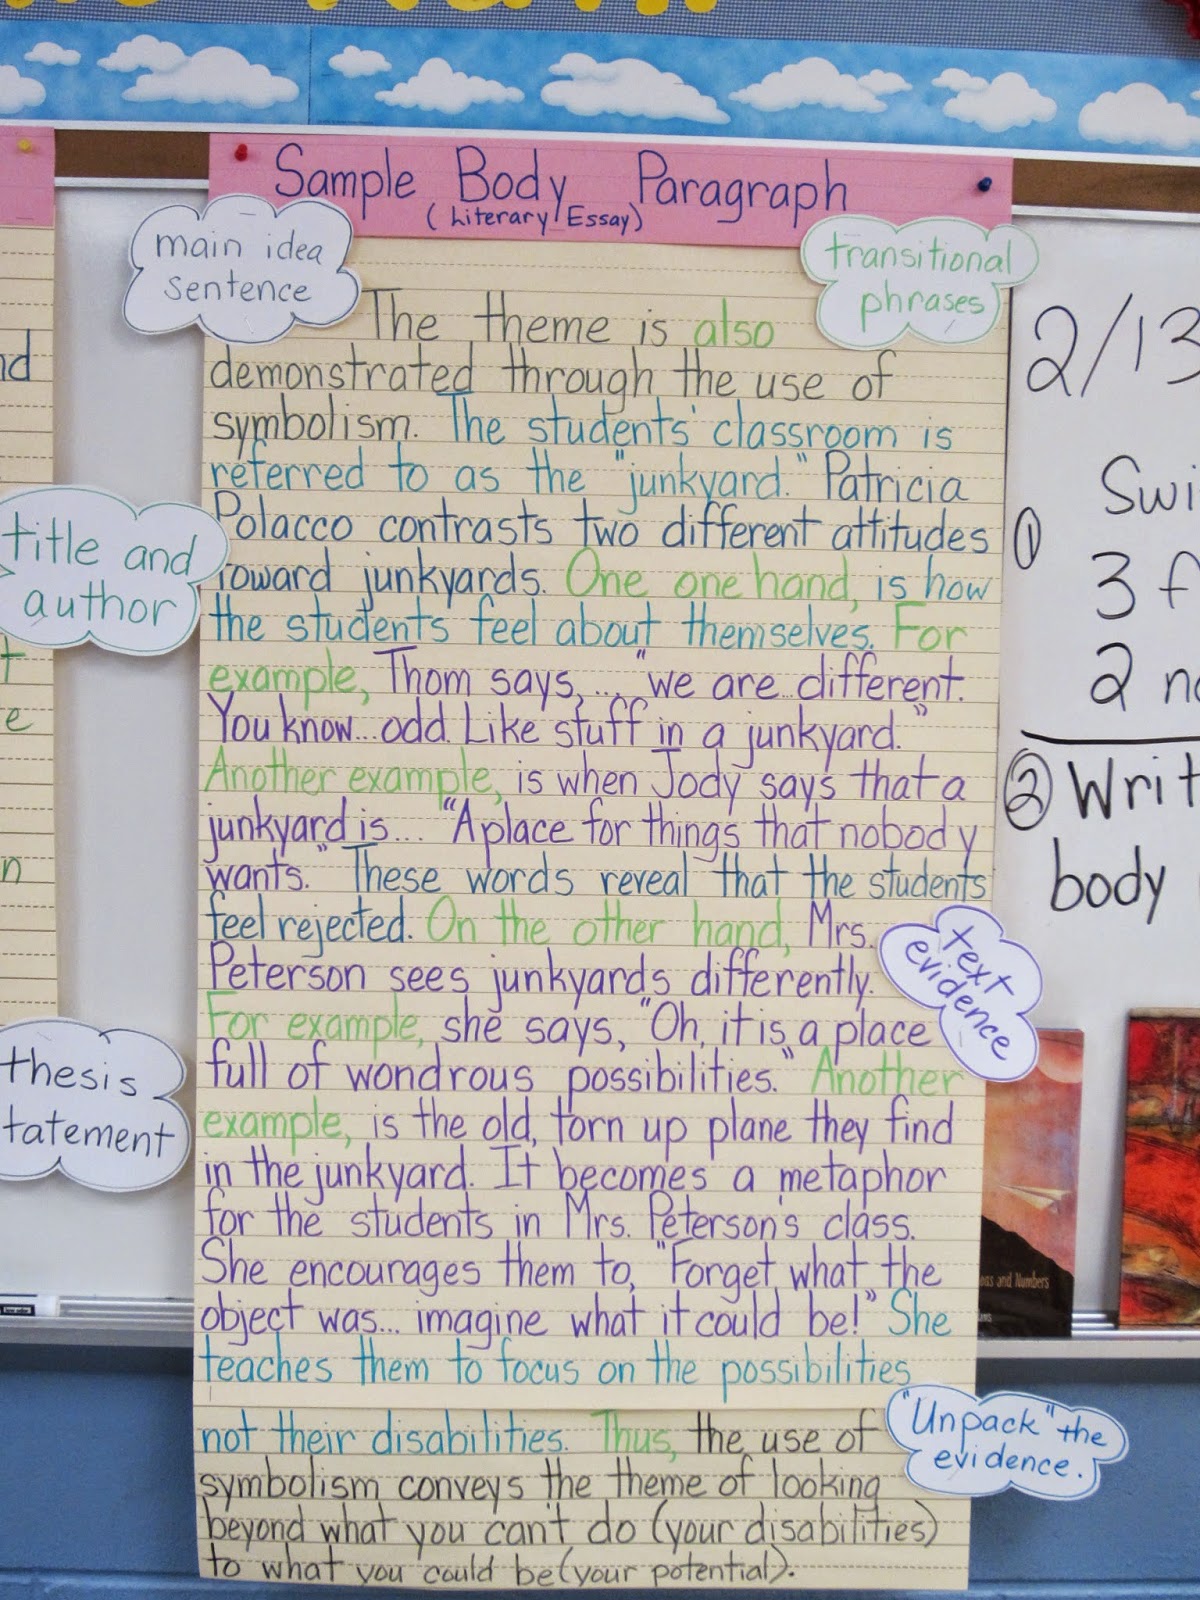 Sample Body Paragraph
(Literary Essay)
main idea
sentence
transitional
phrases
The theme is also
demonstrated through the use of
symbolism. The students' classroom is
referred to as the "junkyard." Patricia
Polacco contrasts two different attitudes
toward junkyards. One one hand, is how
the students feel about themselves. For
example, Thom says, ... "we are different.
You know...odd. Like stuff in a junkyard."
Another example, is when Jody says that a
junkyard is... "A place for things that nobody
wants." These words reveal that the students
feel rejected. On the other hand, Mrs.
Peterson sees junkyards differently.
For example, she says, "Oh, it is a place
full of wondrous possibilities." Another
example, is the old, torn up plane they find
in the junkyard. It becomes a metaphor
for the students in Mrs. Peterson's class.
She encourages them to, "Forget what the
object was... imagine what it could be!" She
teaches them to focus on the possibilities
not their disabilities. Thus, the use of
symbolism conveys the theme of looking
beyond what you can't do (your disabilities)
to what you could be (your potential).
title and
author
thesis
tatement
text
evidence
"Unpack" the
evidence.
nd
t
e
n
2/13
① Swi
3 f
2 no
② Writ
body
and Numbers